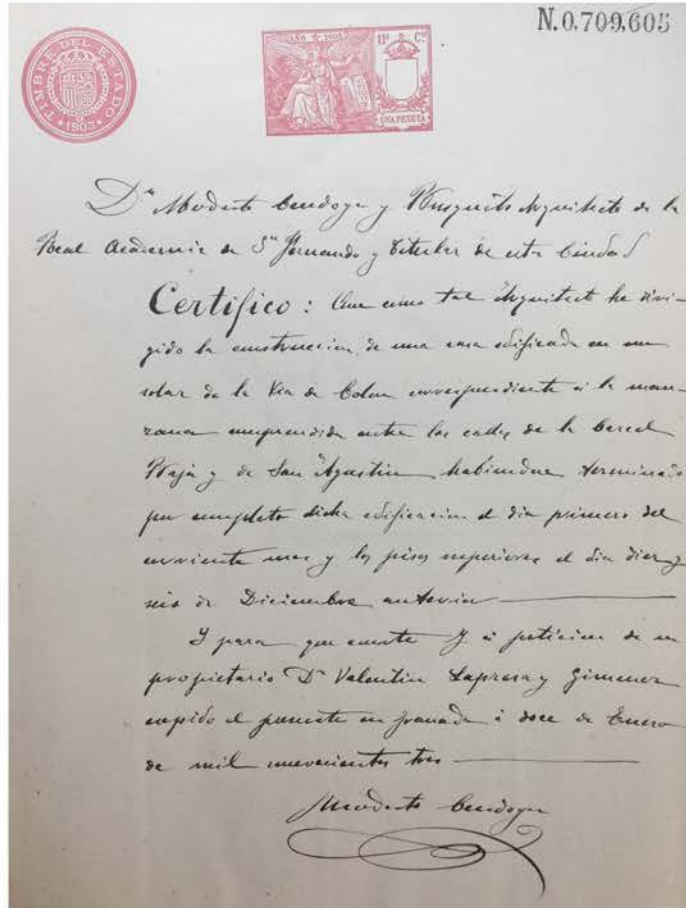 N.0,709,605
TIMBRE DEL ESTADO
1903
AÑO 1903
11ª Cº
UNA PESETA
Dn Modesto Cendoya y Busquéts Arquitecto de la
Real Academia de Sn Fernando y titular de esta Ciudad
Certifico: Que como tal Arquitecto he diri-
gido la construccion de una casa edificada en un
solar de la Via de Colon correspondiente á la man-
zana comprendida entre las calles de la Carcel
Baja y de San Agustin habiendose terminado
por completo dicha edificacion el dia primero del
corriente mes y los pisos superiores el dia diez y
seis de Diciembre anterior
Y para que conste y á peticion de su
propietario Dn Valentin Lapresa y Gimenez
expido el presente en Granada á doce de Enero
de mil novecientos tres
Modesto Cendoya